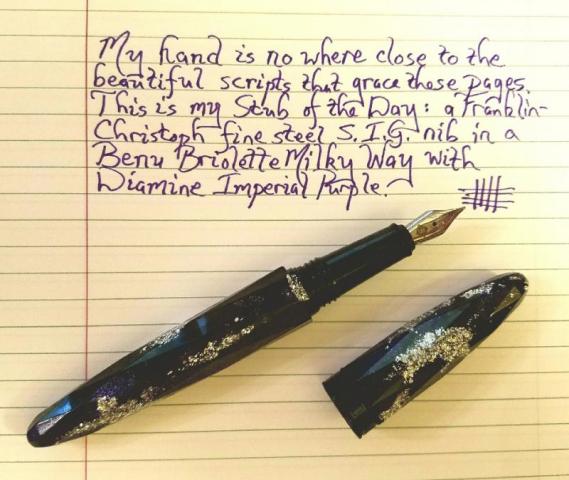 My hand is no where close to the
beautiful scripts that grace these pages.
This is my Stub of the Day: a Franklin-
Christoph fine steel S.I.G. nib in a
Benu Briolette Milky Way with
Diamine Imperial Purple.